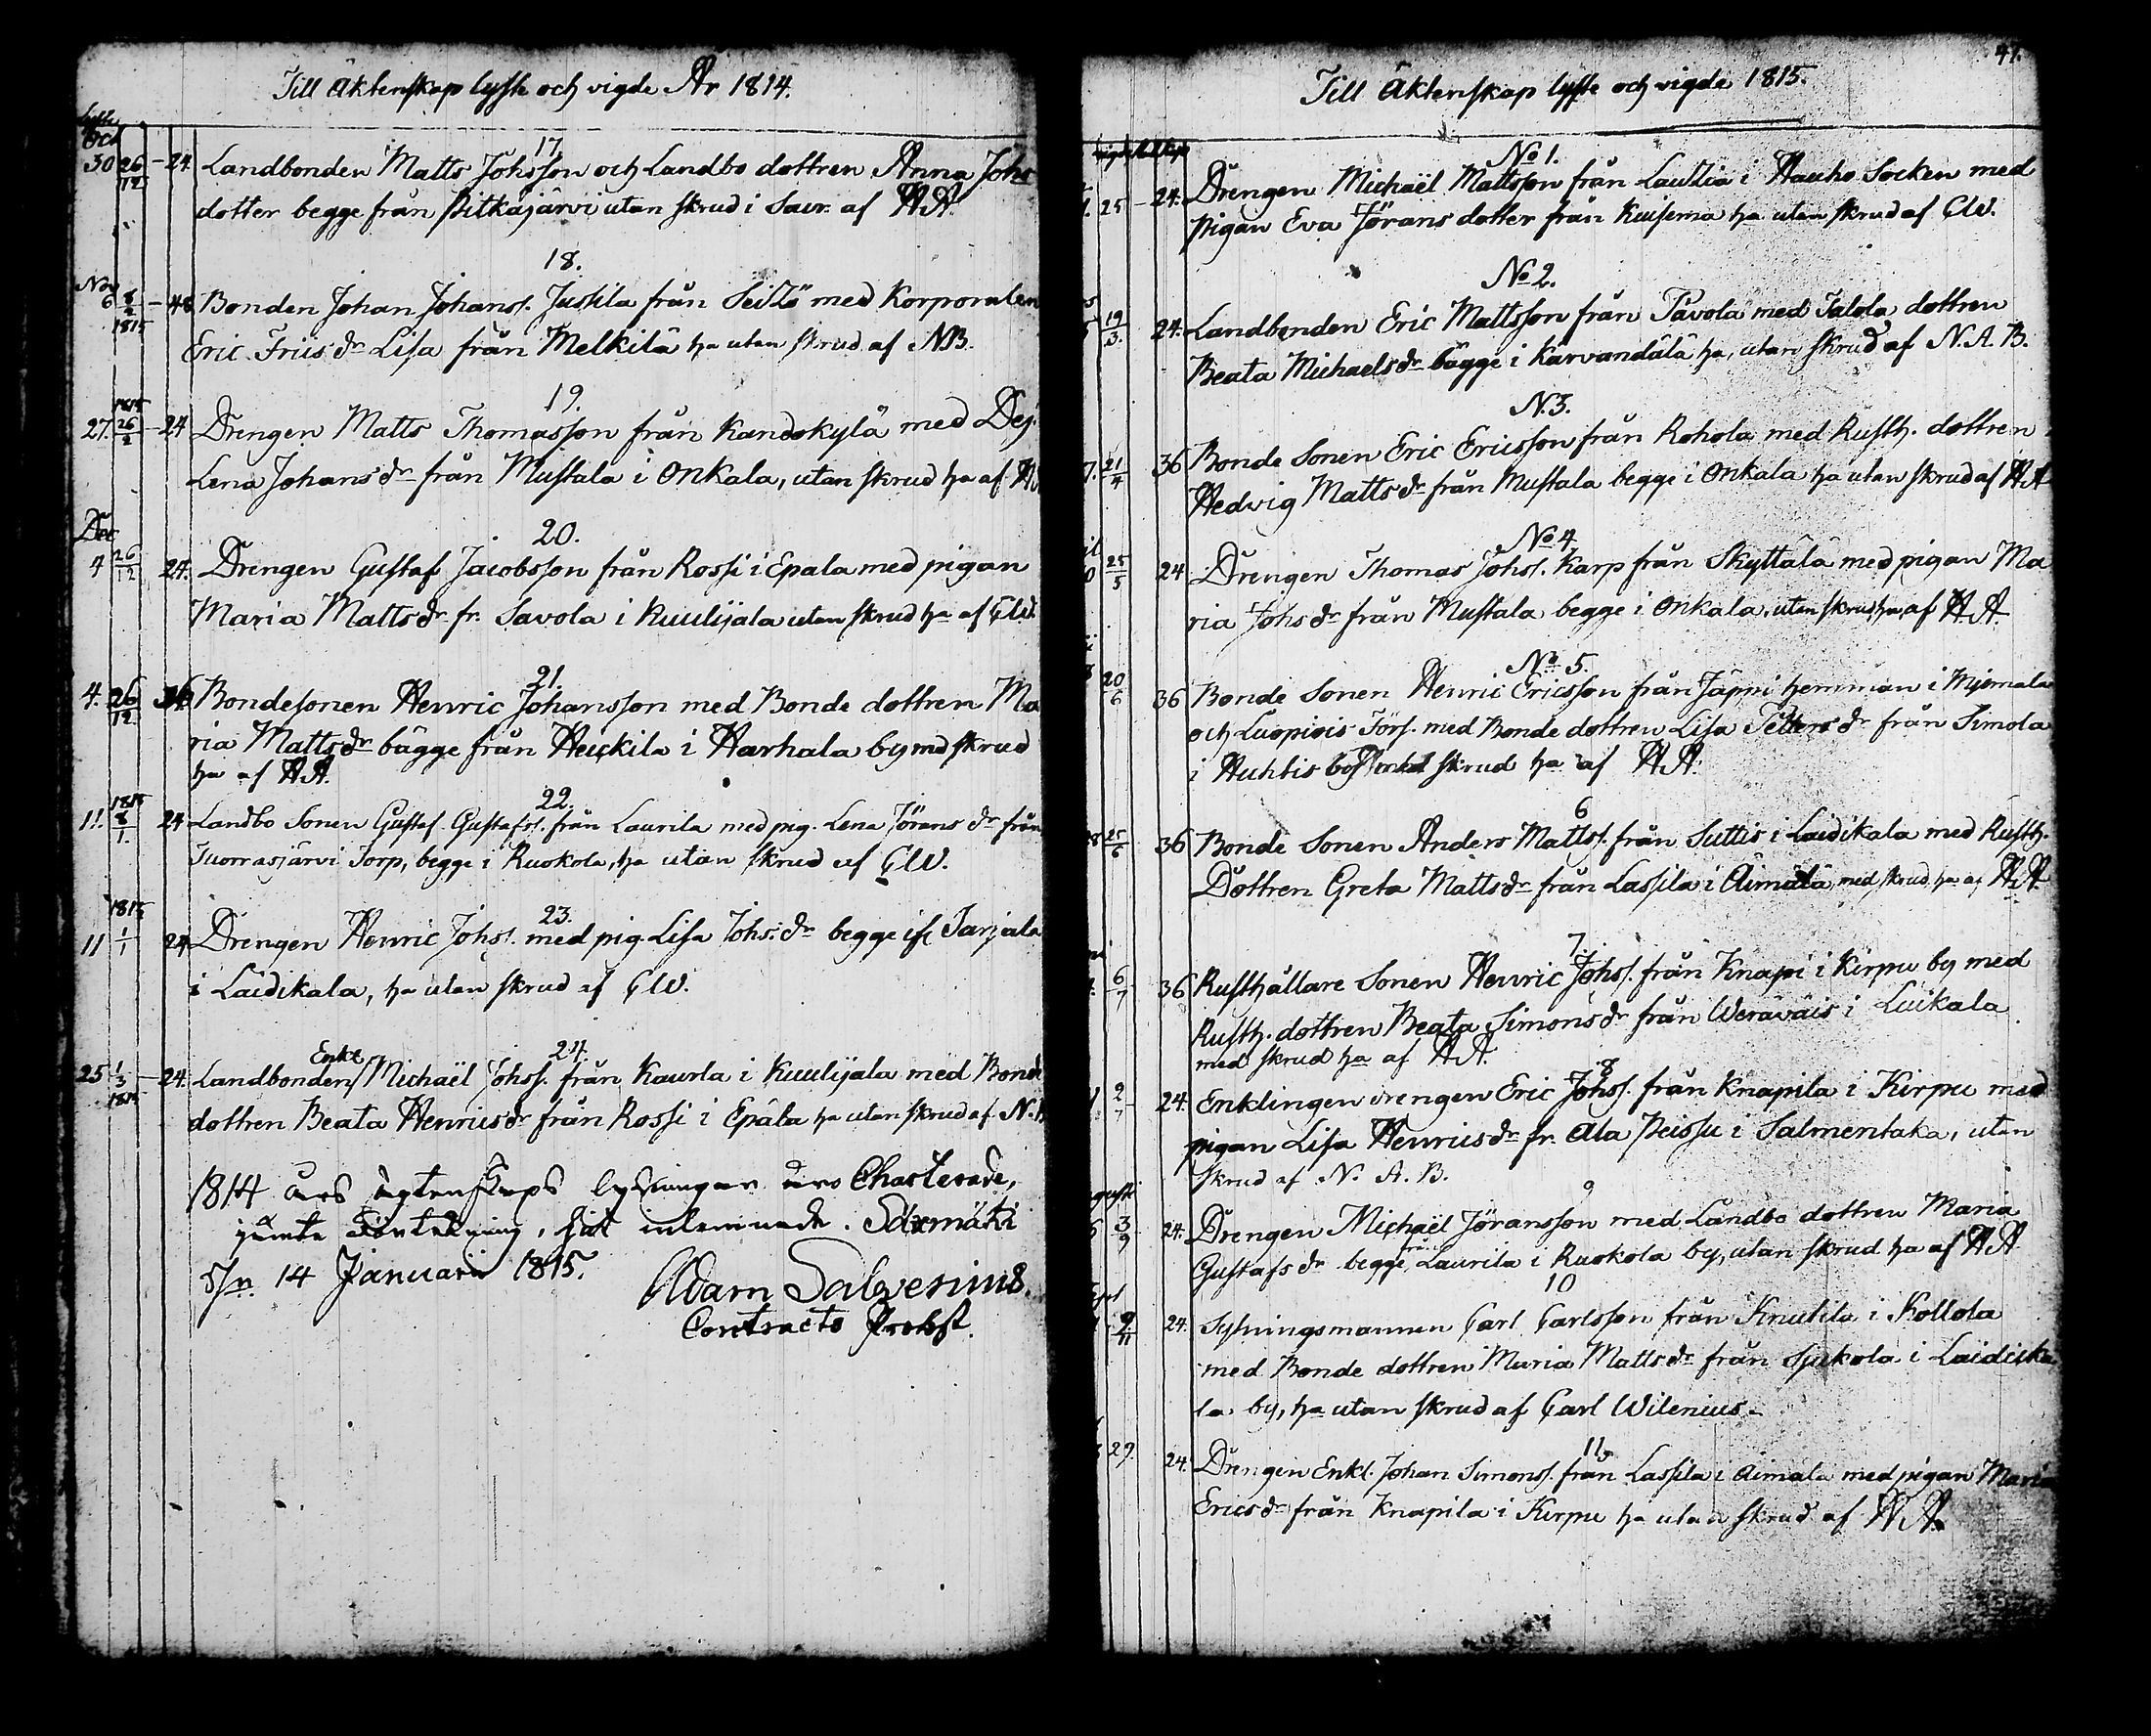 Till Äktenskap lyste och vigde År 1814.
Lyste
Oct
17
30 26/12 - 24. Landbonden Matts Johsson och Landbo dottren Anna Johs
dotter begge från Pitkäjärvi utan skrud i Sacr. af HA.
18.
Nov
6 8/2 1815 - 48 Bonden Johan Johans. Jussila från Seitzö med Korporalen
Eric Friis dr Lisa från Melkilä ha utan skrud af NB.
19.
27. 1815 26/2 - 24 Drengen Matts Thomasson från Kandokylä med Dej.
Lena Johans dr från Mustala i Onkala, utan skrud ha af
Dec
20.
4 26/12 24. Drengen Gustaf Jacobsson från Rossi i Epala med pigan
Maria Matts dr fr. Savola i Kuulijala utan skrud ha af CW.
21.
4. 26/12 36 Bondesonen Henric Johansson med Bonde dottren Ma
ria Matts dr bägge från Heickilä i Harhala by md skrud
ha af HA.
22.
11. 1815 8/1. 24 Landbo Sonen Gustaf Gustafs. från Laurila med pig. Lena Jörans dr från
Juorrasjärvi Torp, begge i Ruokola, ha utan skrud af CW.
23.
11 1815 1/1 24 Drengen Henric Johs. med pig. Lisa Johs. dr begge ifr Tarjala
i Laidikala, ha utan skrud af CW.
24.
25 1/3 1815 - 24. Landbonden Enkl. Michaël Johss. från Kaurla i Kuulijala med Bonde
dottren Beata Henrics dr från Rossi i Epäla ha utan skrud af N.
1814 års ägtenskaps lysningar äro Charterade,
jämte Förtekning, hit inlemnade. Säxmäki
d. 14 Januarii 1815.
Adam Salvenius.
Contracts Probst.
41.
Till Äktenskap lyste och vigde 1815.
No 1.
25 - 24. Drengen Michaël Mattsson från Lautzia i Hauho Socken med
pigan Eva Jörans dotter från Kuisema ha utan skrud af CW.
No 2.
19/3. 24. Landbonden Eric Mattsson från Pävolä med Talola dottren
Beata Michaels dr bägge i Karvandälä ha, utan skrud af N. A. B.
N. 3.
21/4 36 Bonde Sonen Eric Ericsson från Rohola med Rusth. dottren
Hedvig Matts dr från Mustala begge i Onkala ha utan skrud af HA
No 4
25/5 24 Drengen Thomas Johs. Karp från Skyttälä med pigan Ma
ria Johs dr från Mustala begge i Onkala, utan skrud, ha, af HA.
No 5.
20/6 36 Bonde Sonen Henric Ericsson från Jäppi hemman i Mjemala
och Luopiois Förs. med Bonde dottren Lisa Petters dr från Simola
i Huhtis by skrud ha af HA.
6
25/6 36 Bonde Sonen Anders Matts. från Suttis i Laidikala med Rusth.
Dottren Greta Matts dr från Lassila i Äimälä, med skrud ha af HA
7
6/7 36 Rusthållare Sonen Henric Johs. från Knapi i Kirpu by med
Rusth. dottren Beata Simons dr från Weräväis i Luikala
med skrud ha af HA.
8
2/7 24. Enklingen drengen Eric Johss. från Knapila i Kirpu med
pigan Lisa Henrics dr fr. Ala Peissu i Salmentaka, utan
skrud af N. A. B.
9
3/9 24. Drengen Michaël Jöransson med Landbo dottren Maria
Gustafs dr begge från Laurila i Ruokola by, utan skrud ha af HA
10
9/11 24. Sytningsmannen Carl Carlsson från Knutila i Kollola
med Bonde dottren Maria Matts dr från Sjukola i Laidicka
la by, ha utan skrud af Carl Wilenius.
11
29. 24. Drengen Enkl. Johan Simons. från Lassila i Äimälä med pigan Maria
Erics dr från Knapila i Kirpu ha utan skrud af HA.